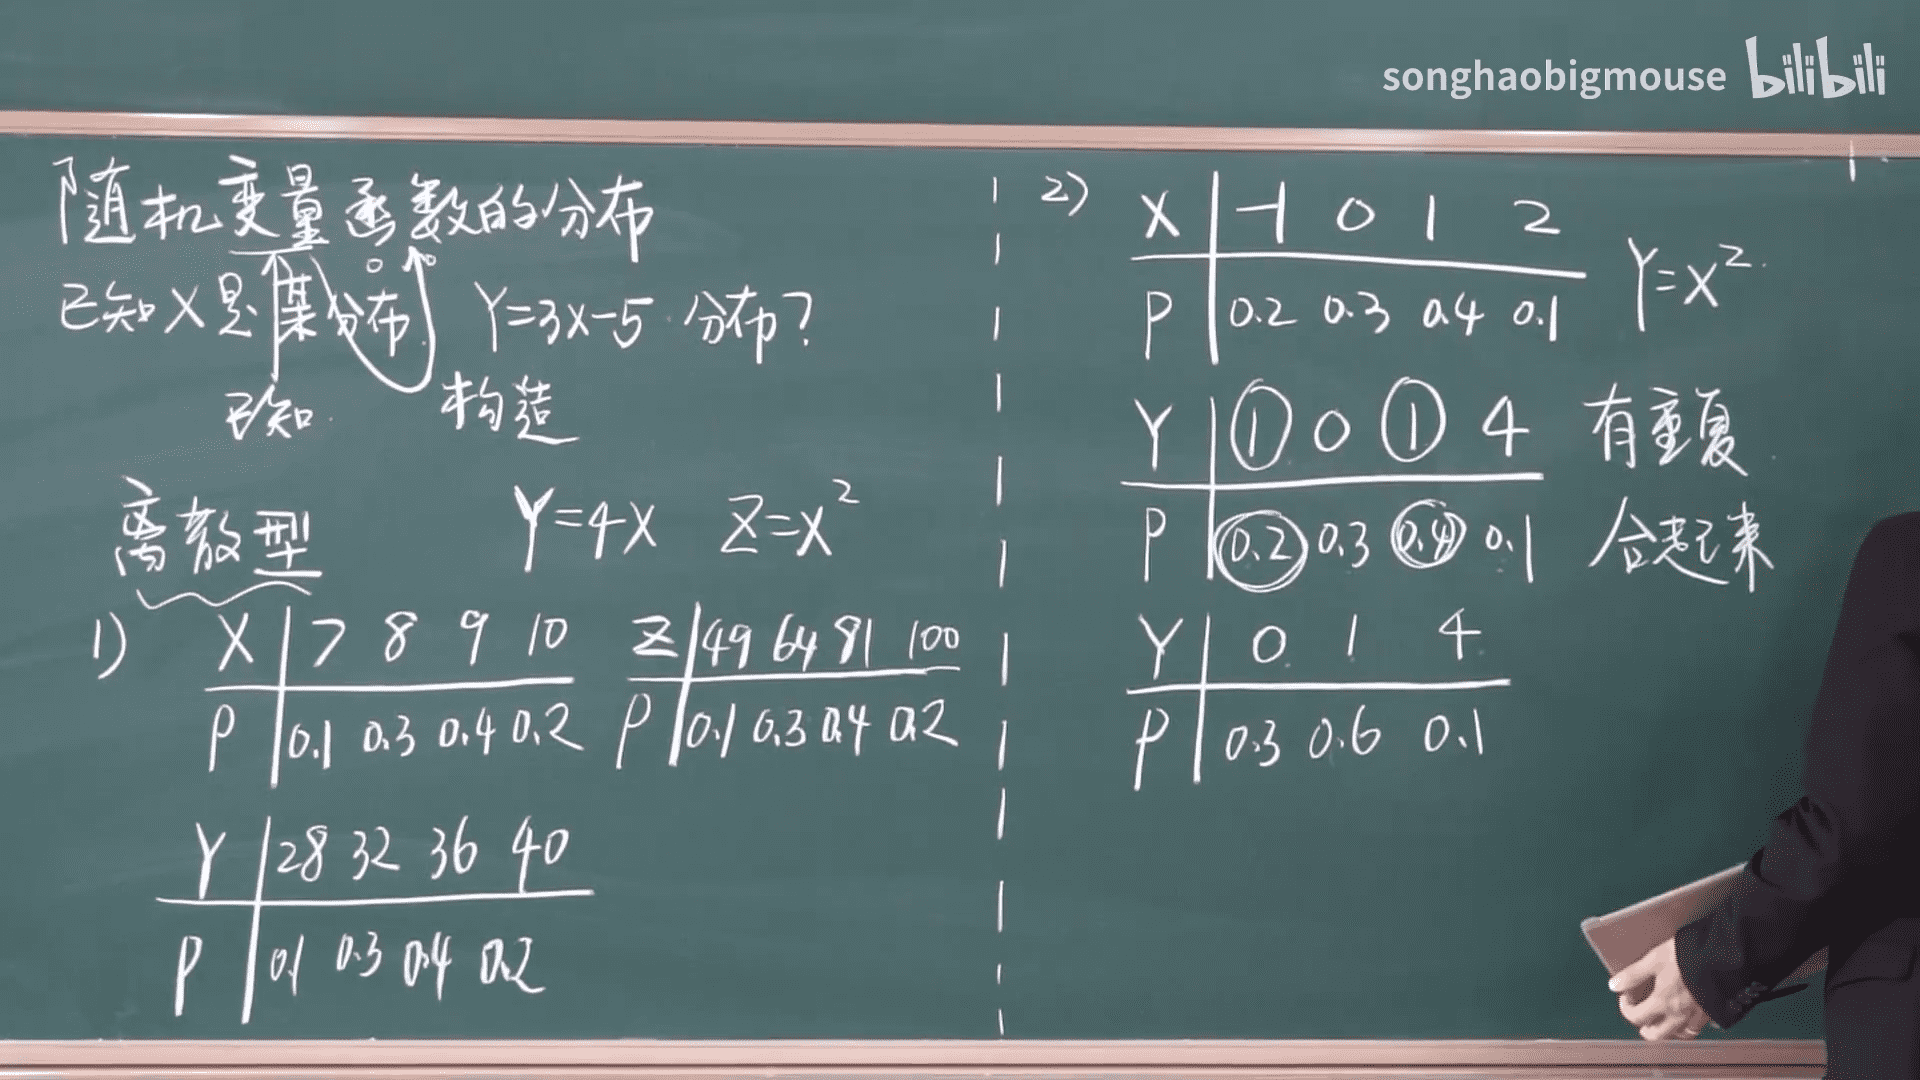 songhaobigmouse bilibili
随机变量函数的分布
已知X是某分布 Y=3X-5 分布?
已知 构造
离散型 Y=4X Z=X²
1)
X 7 8 9 10
P 0.1 0.3 0.4 0.2
Z 49 64 81 100
P 0.1 0.3 0.4 0.2
Y 28 32 36 40
P 0.1 0.3 0.4 0.2
2)
X -1 0 1 2
P 0.2 0.3 0.4 0.1
Y=X²
Y 1 0 1 4 有重复
P 0.2 0.3 0.4 0.1 合起来
Y 0 1 4
P 0.3 0.6 0.1